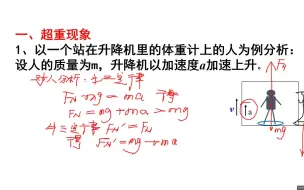 一、超重现象
1、以一个站在升降机里的体重计上的人为例分析:
设人的质量为m，升降机以加速度a加速上升。
对人分析：牛二定律
FN-mg=ma 得
FN=mg+ma>mg
牛三定律 FN'=FN
得 FN'=mg+ma
FN
v
a
mg